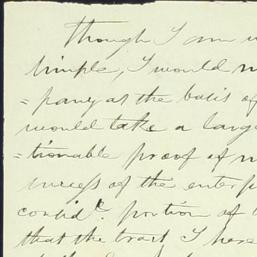 Though I am
simple, I would
=pany as the basis of
would take a large
=tionable proof of
success of the enterp
contidle. portion of
that the tract I here